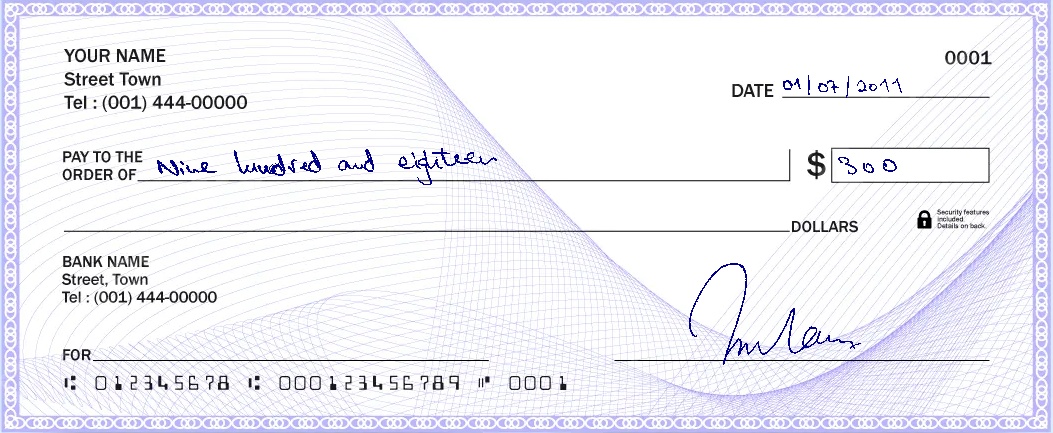 YOUR NAME
0001
Street Town
DATE 01/07/2011
Tel : (001) 444-00000
PAY TO THE
ORDER OF Nine hundred and eighteen $ 300
DOLLARS
Security features
included.
Details on back.
BANK NAME
Street, Town
Tel : (001) 444-00000
FOR
⑆ 012345678 ⑆ 000123456789 ⑈ 0001